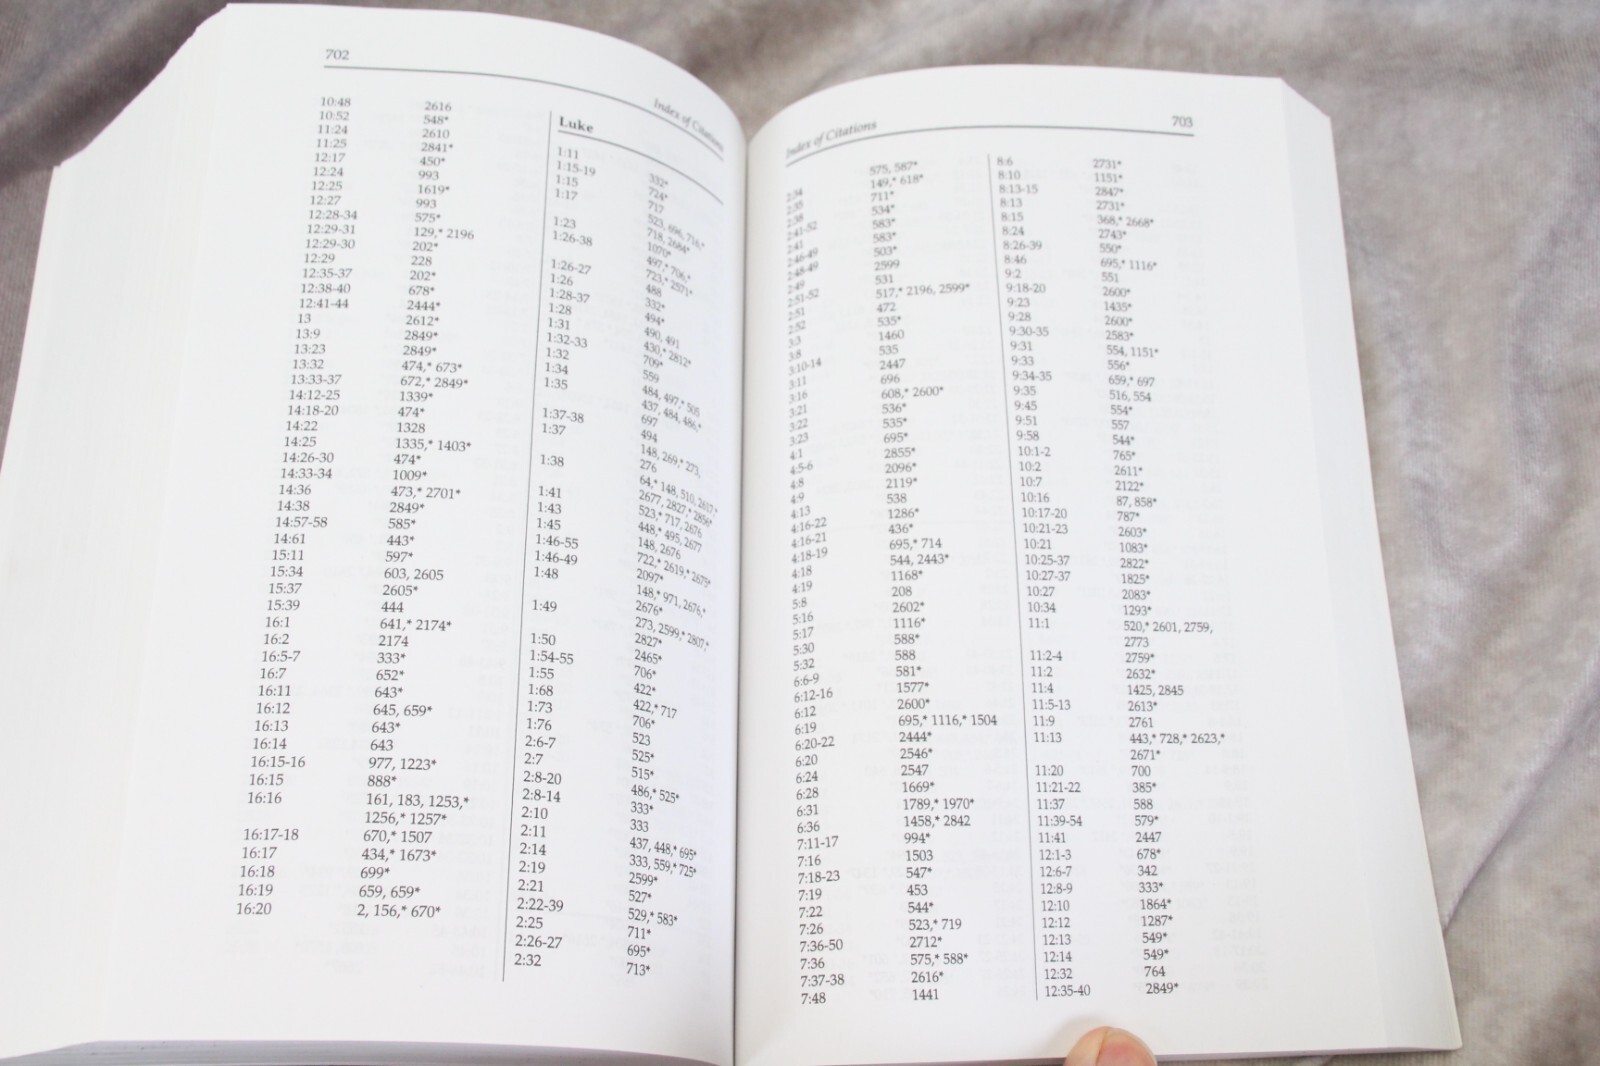 702
Index of Citations
10:48 2616
10:52 548*
11:24 2610
11:25 2841*
12:17 450*
12:24 993
12:25 1619*
12:27 993
12:28-34 575*
12:29-31 129,* 2196
12:29-30 202*
12:29 228
12:35-37 202*
12:38-40 678*
12:41-44 2444*
13 2612*
13:9 2849*
13:23 2849*
13:32 474,* 673*
13:33-37 672,* 2849*
14:12-25 1339*
14:18-20 474*
14:22 1328
14:25 1335,* 1403*
14:26-30 474*
14:33-34 1009*
14:36 473,* 2701*
14:38 2849*
14:57-58 585*
14:61 443*
15:11 597*
15:34 603, 2605
15:37 2605*
15:39 444
16:1 641,* 2174*
16:2 2174
16:5-7 333*
16:7 652*
16:11 643*
16:12 645, 659*
16:13 643*
16:14 643
16:15-16 977, 1223*
16:15 888*
16:16 161, 183, 1253,*
1256,* 1257*
16:17-18 670,* 1507
16:17 434,* 1673*
16:18 699*
16:19 659, 659*
16:20 2, 156,* 670*
Luke
1:11 332*
1:15-19 724*
1:15 717
1:17 523, 696, 716,*
718, 2684*
1:23 1070*
1:26-38 497,* 706,*
723,* 2571*
1:26-27 488
1:26 332*
1:28-37 494*
1:28 490, 491
1:31 430,* 2812*
1:32-33 709*
1:32 559
1:34 484, 497,* 505
1:35 437, 484, 486,*
697
1:37-38 494
1:37 148, 269,* 273,
276
1:38 64,* 148, 510, 2617,*
2677, 2827,* 2856*
1:41 523,* 717, 2676
1:43 448,* 495, 2677
1:45 148, 2676
1:46-55 722,* 2619,* 2675*
1:46-49 2097*
1:48 148,* 971, 2676,*
2676*
1:49 273, 2599,* 2807,*
2827*
1:50 2465*
1:54-55 706*
1:55 422*
1:68 422,* 717
1:73 706*
1:76 523
2:6-7 525*
2:7 515*
2:8-20 486,* 525*
2:8-14 333*
2:10 333
2:11 437, 448,* 695*
2:14 333, 559,* 725*
2:19 2599*
2:21 527*
2:22-39 529,* 583*
2:25 711*
2:26-27 695*
2:32 713*
Index of Citations
703
2:34 575, 587*
2:35 149,* 618*
2:38 711*
2:41-52 534*
2:41 583*
2:46-49 583*
2:48-49 503*
2:49 2599
2:51-52 531
2:51 517,* 2196, 2599*
2:52 472
3:3 535*
3:8 1460
3:10-14 535
3:11 2447
3:16 696
3:21 608,* 2600*
3:22 536*
3:23 535*
4:1 695*
4:5-6 2855*
4:8 2096*
4:9 2119*
4:13 538
4:16-22 1286*
4:16-21 436*
4:18-19 695,* 714
4:18 544, 2443*
4:19 1168*
5:8 208
5:16 2602*
5:17 1116*
5:30 588*
5:32 588
6:6-9 581*
6:12-16 1577*
6:12 2600*
6:19 695,* 1116,* 1504
6:20-22 2444*
6:20 2546*
6:24 2547
6:28 1669*
6:31 1789,* 1970*
6:36 1458,* 2842
7:11-17 994*
7:16 1503
7:18-23 547*
7:19 453
7:22 544*
7:26 523,* 719
7:36-50 2712*
7:36 575,* 588*
7:37-38 2616*
7:48 1441
8:6 2731*
8:10 1151*
8:13-15 2847*
8:13 2731*
8:15 368,* 2668*
8:24 2743*
8:26-39 550*
8:46 695,* 1116*
9:2 551
9:18-20 2600*
9:23 1435*
9:28 2600*
9:30-35 2583*
9:31 554, 1151*
9:33 556*
9:34-35 659,* 697
9:35 516, 554
9:45 554*
9:51 557
9:58 544*
10:1-2 765*
10:2 2611*
10:7 2122*
10:16 87, 858*
10:17-20 787*
10:21-23 2603*
10:21 1083*
10:25-37 2822*
10:27-37 1825*
10:27 2083*
10:34 1293*
11:1 520,* 2601, 2759,
2773
11:2-4 2759*
11:2 2632*
11:4 1425, 2845
11:5-13 2613*
11:9 2761
11:13 443,* 728,* 2623,*
2671*
11:20 700
11:21-22 385*
11:37 588
11:39-54 579*
11:41 2447
12:1-3 678*
12:6-7 342
12:8-9 333*
12:10 1864*
12:12 1287*
12:13 549*
12:14 549*
12:32 764
12:35-40 2849*